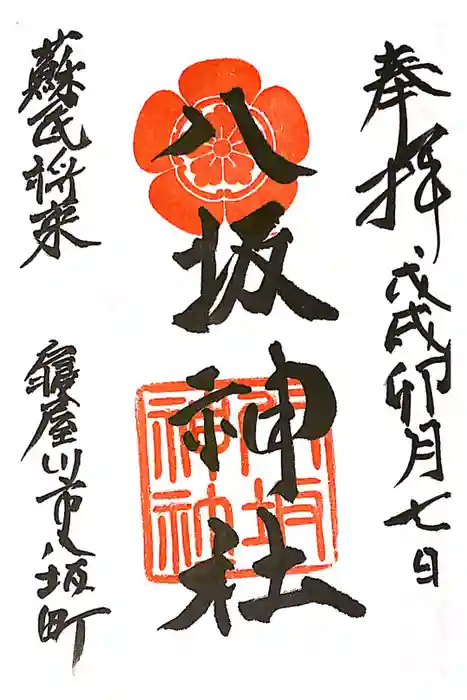 奉拝 戊戌卯月七日
八坂神社
八坂神社
蘇民将来
寝屋川市八坂町